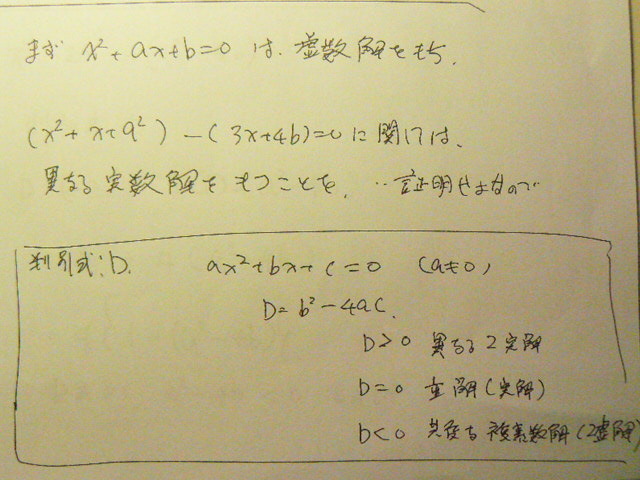 まず x²+ax+b=0 は、虚数解をもち、
(x²+x+a²)-(3x+4b)=0 に関しては、
異なる実数解をもつことを、‥証明せよなので
判別式:D. ax²+bx+c=0 (a≠0)
D=b²-4ac.
D>0 異なる2実解
D=0 重解(実解)
D<0 共役な複素数解(2虚解)